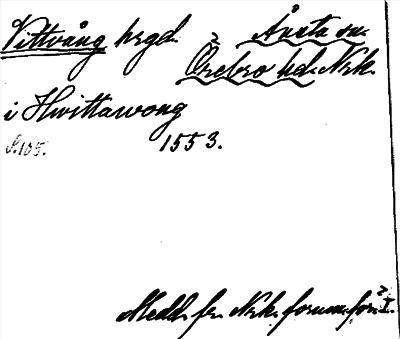 Vittvång hrgd. ? Ånsta sn.
Örebro hd. Nrk.
i Hwittawong
S. 105. 1553.
Medd. fr. Nrk. fornm. för. I.